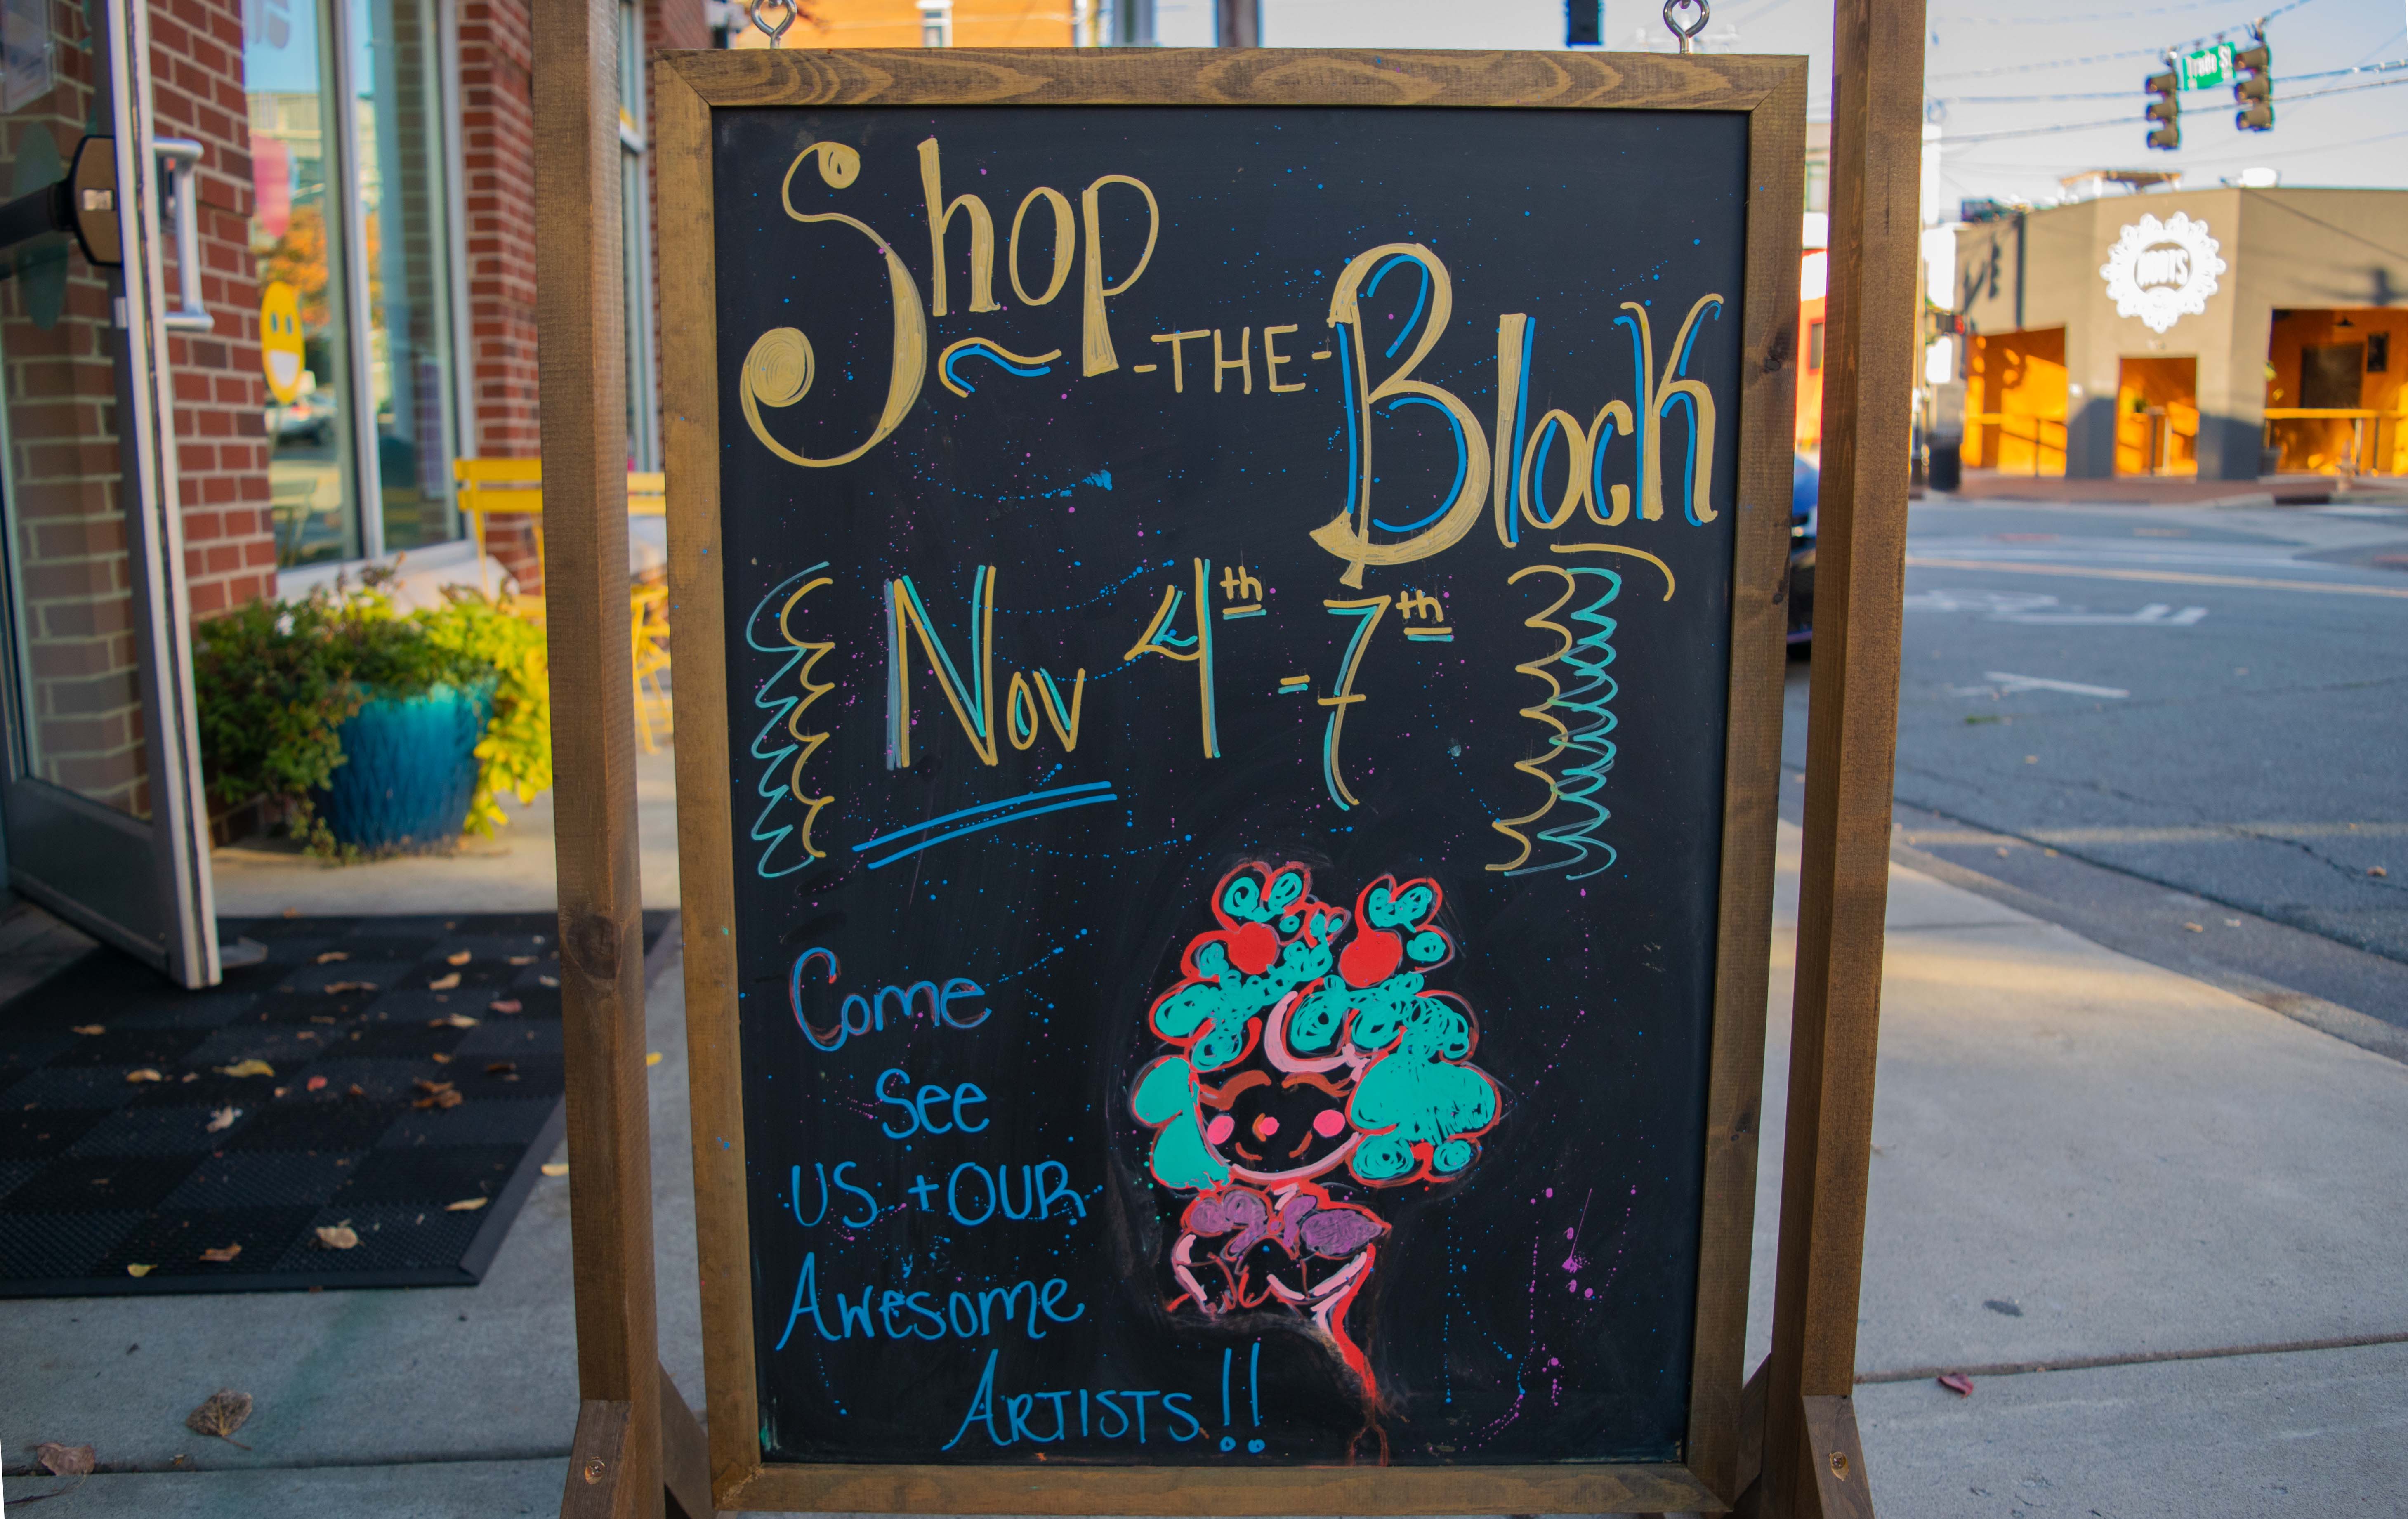 Shop
-THE-
Block
Nov 4th - 7th
Come
See
US + OUR
Awesome
ARTISTS!!
Trade St